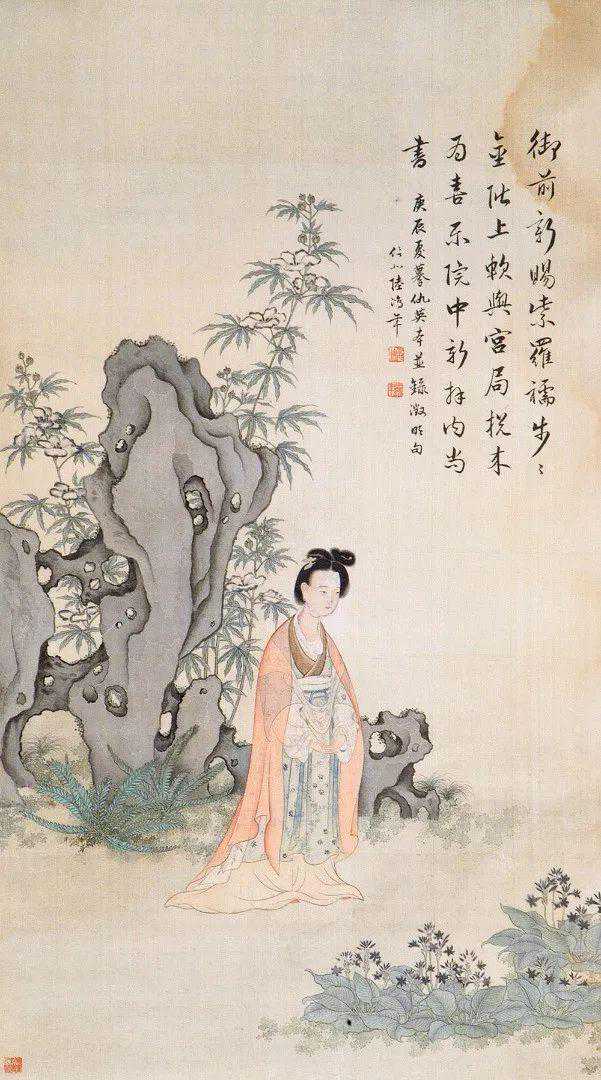 御前新賜紫羅襦步々
金階上軟輿宮局捴来
為喜樂院中新拜內尚
書 庚辰夏摹仇英本並錄徵明句
陸鴻年